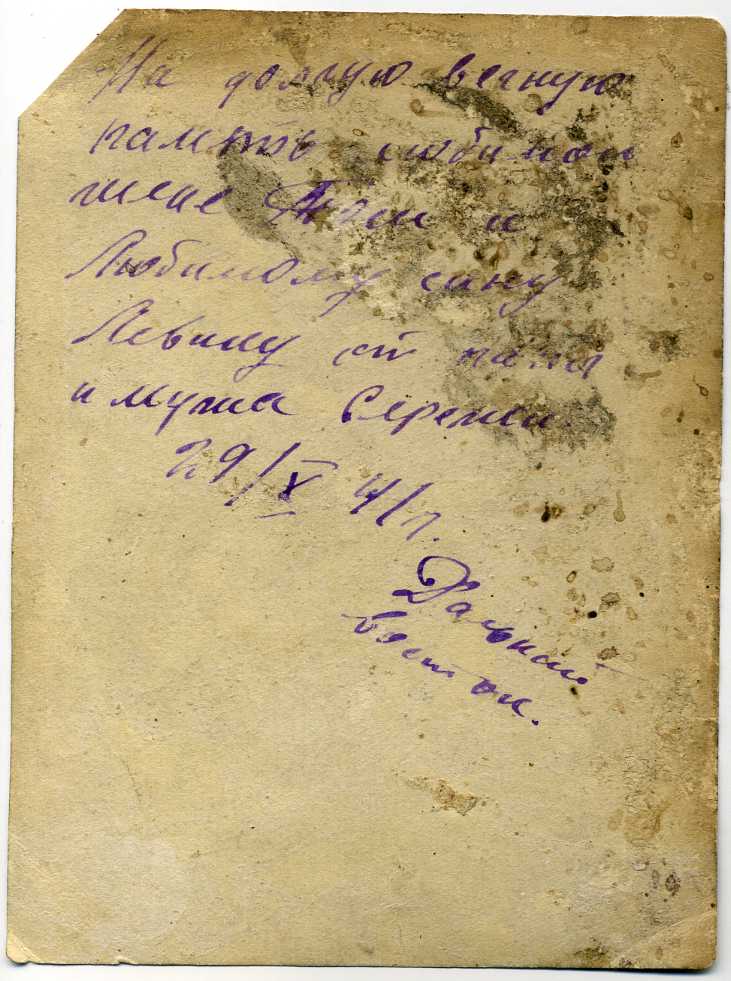 На долгую вечную
память любимой
жене и
Любимому сыну
от папы
и мужа Сережи.
29/X 41 г.
Дальний
восток.